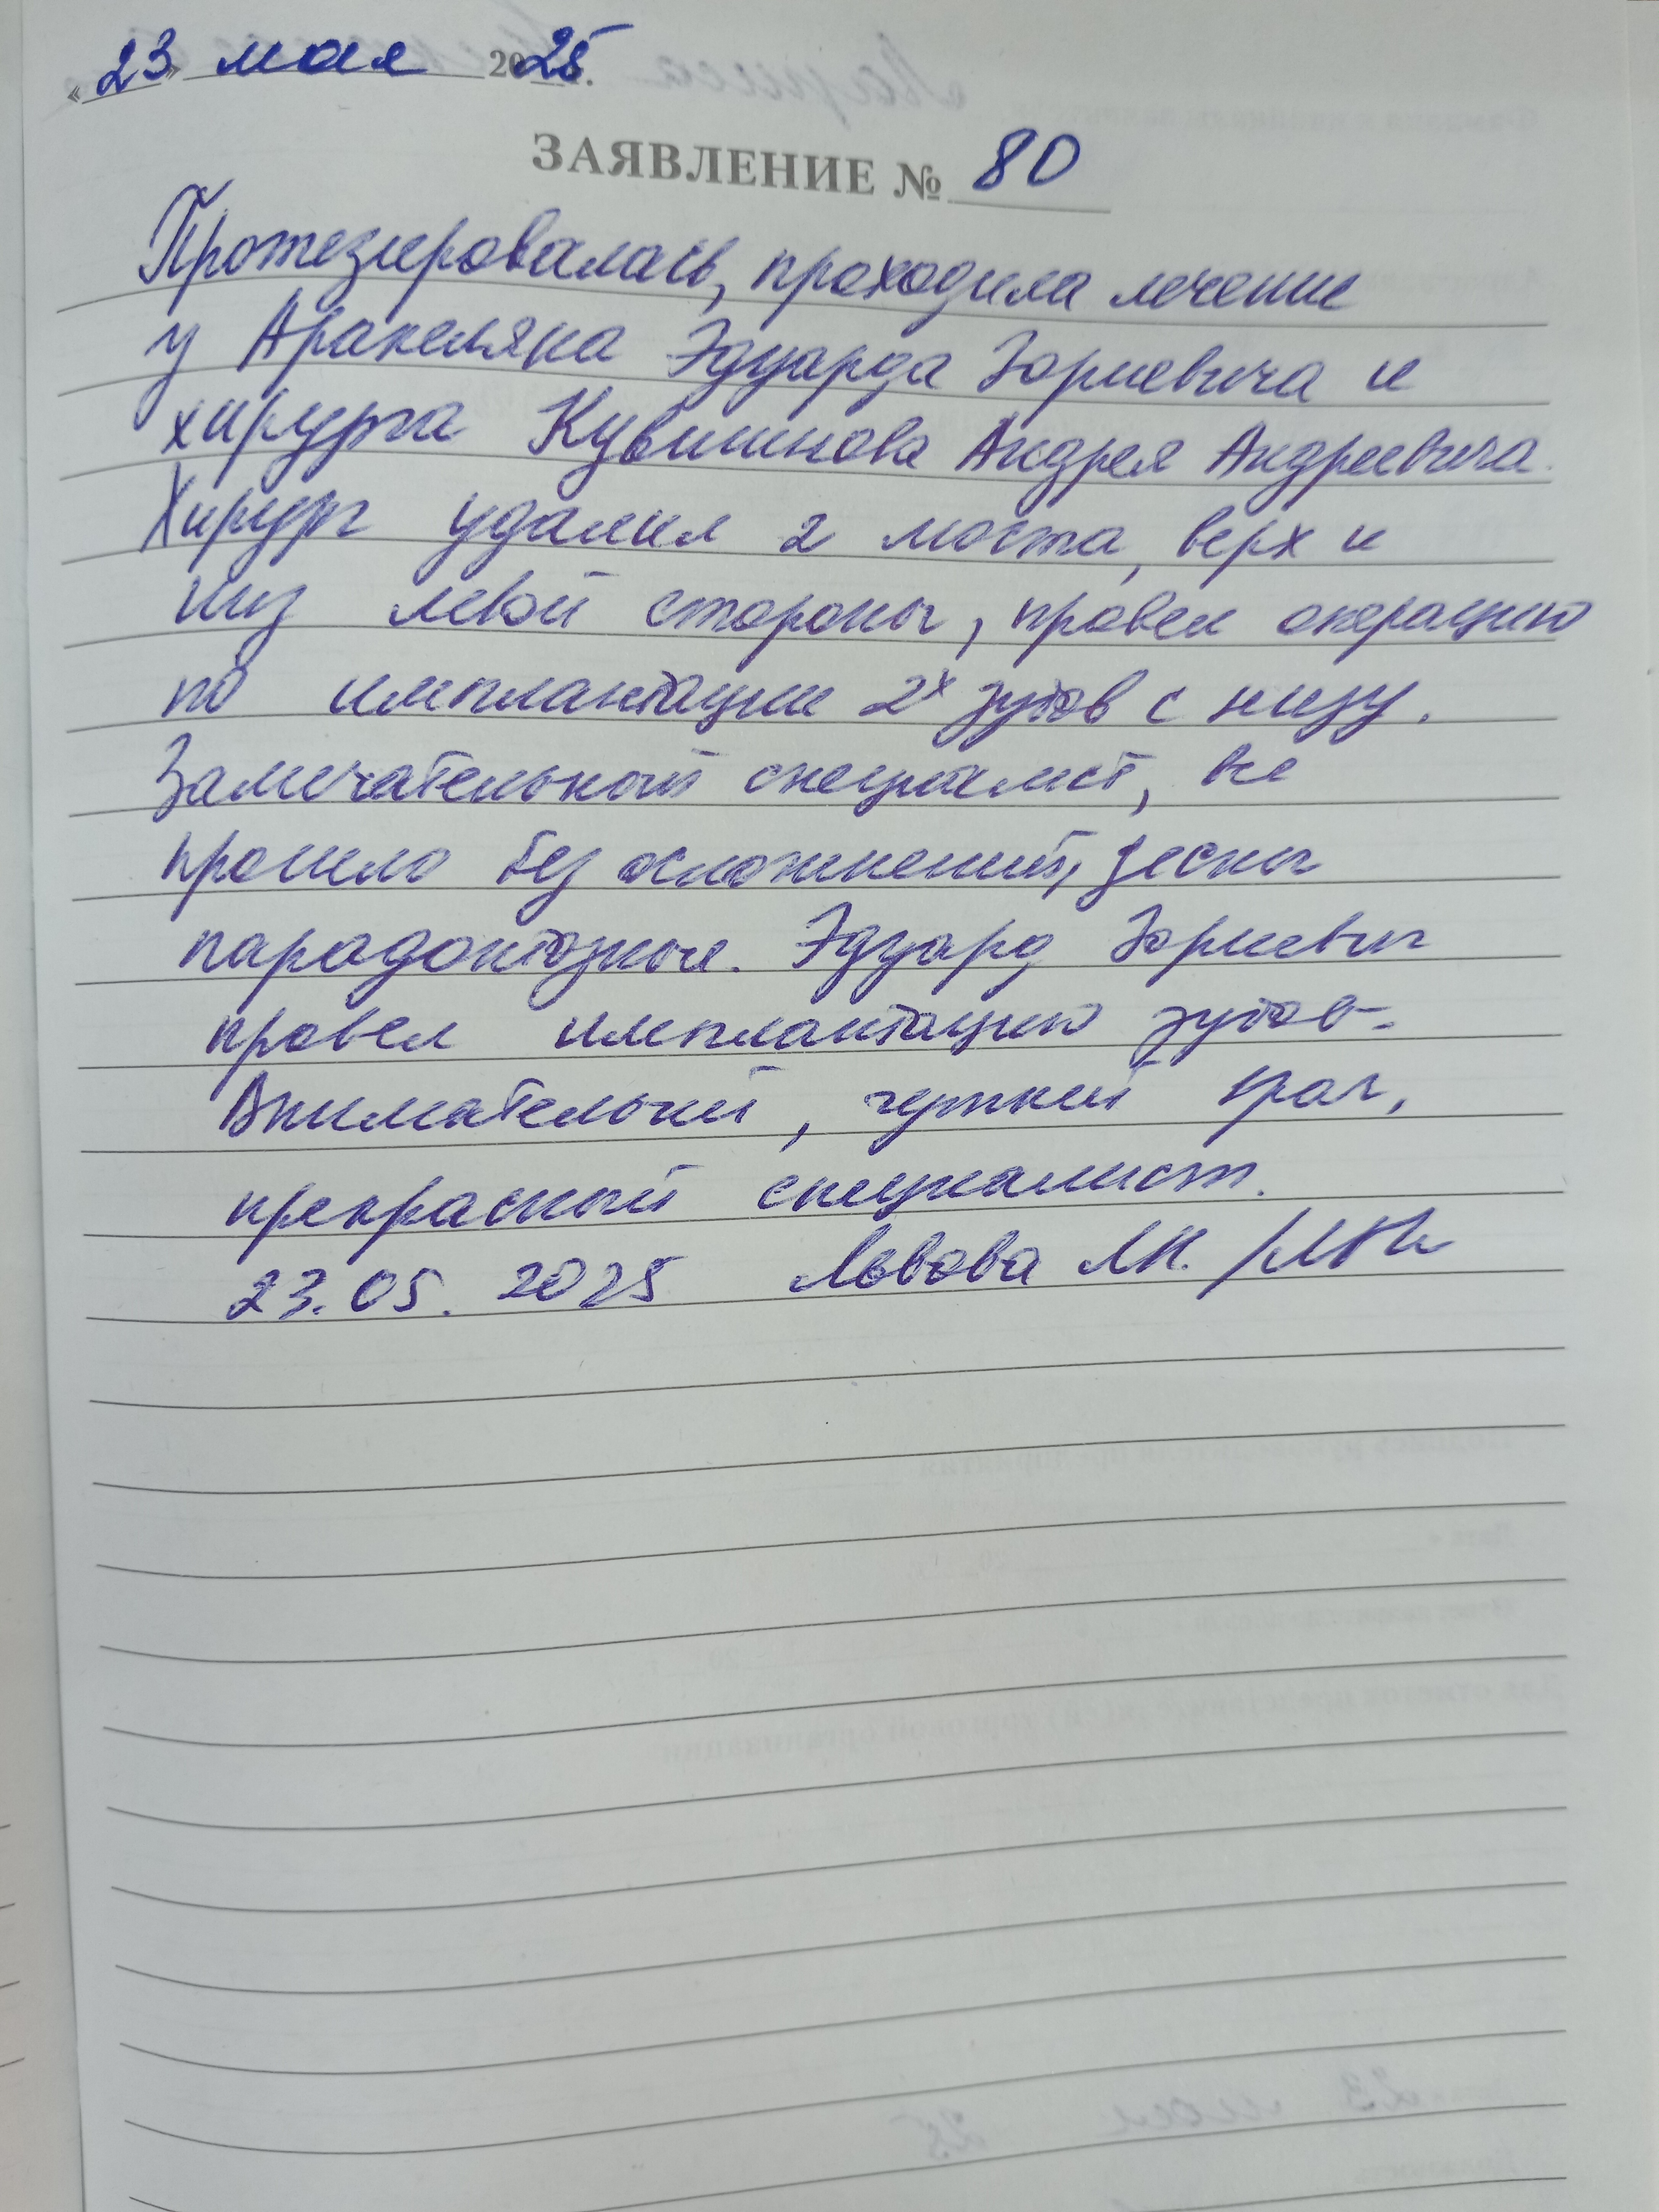 «23» мая 2025.
ЗАЯВЛЕНИЕ № 80
Протезировалась, проходила лечение
у Аракеляна Эдуарда Юриевича и
хирурга Кувшинова Андрея Андреевича.
Хирург удалил 2 моста, верх и
низ левой стороны, провел операцию
по имплантации 2х зубов с низу.
Замечательный специалист, все
прошло без осложнений, десны
парадонтозные. Эдуард Юриевич
провел имплантацию зубов.
Внимательный, чуткий врач,
прекрасный специалист.
23.05.2025 Львова Л.Н.